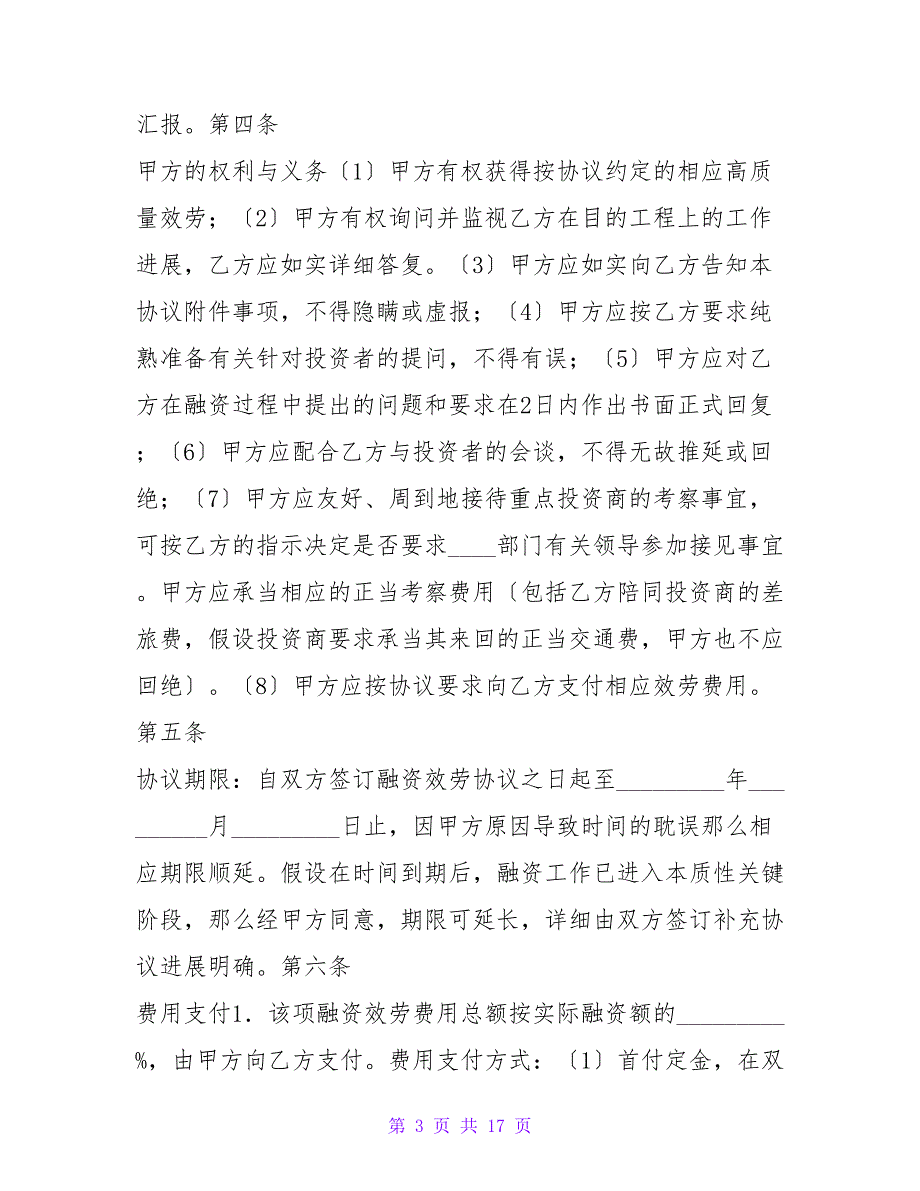 汇报。第四条
甲方的权利与义务〔1〕甲方有权获得按协议约定的相应高质
量效劳；〔2〕甲方有权询问并监视乙方在目的工程上的工作
进展，乙方应如实详细答复。〔3〕甲方应如实向乙方告知本
协议附件事项，不得隐瞒或虚报；〔4〕甲方应按乙方要求纯
熟准备有关针对投资者的提问，不得有误；〔5〕甲方应对乙
方在融资过程中提出的问题和要求在2日内作出书面正式回复
；〔6〕甲方应配合乙方与投资者的会谈，不得无故推延或回
绝；〔7〕甲方应友好、周到地接待重点投资商的考察事宜，
可按乙方的指示决定是否要求____部门有关领导参加接见事宜
。甲方应承当相应的正当考察费用〔包括乙方陪同投资商的差
旅费，假设投资商要求承当其来回的正当交通费，甲方也不应
回绝〕。〔8〕甲方应按协议要求向乙方支付相应效劳费用。
第五条
协议期限：自双方签订融资效劳协议之日起至_________年___
______月_________日止，因甲方原因导致时间的耽误那么相
应期限顺延。假设在时间到期后，融资工作已进入本质性关键
阶段，那么经甲方同意，期限可延长，详细由双方签订补充协
议进展明确。第六条
费用支付1．该项融资效劳费用总额按实际融资额的_________
%，由甲方向乙方支付。费用支付方式：〔1〕首付定金，在双
第 3 页 共 17 页